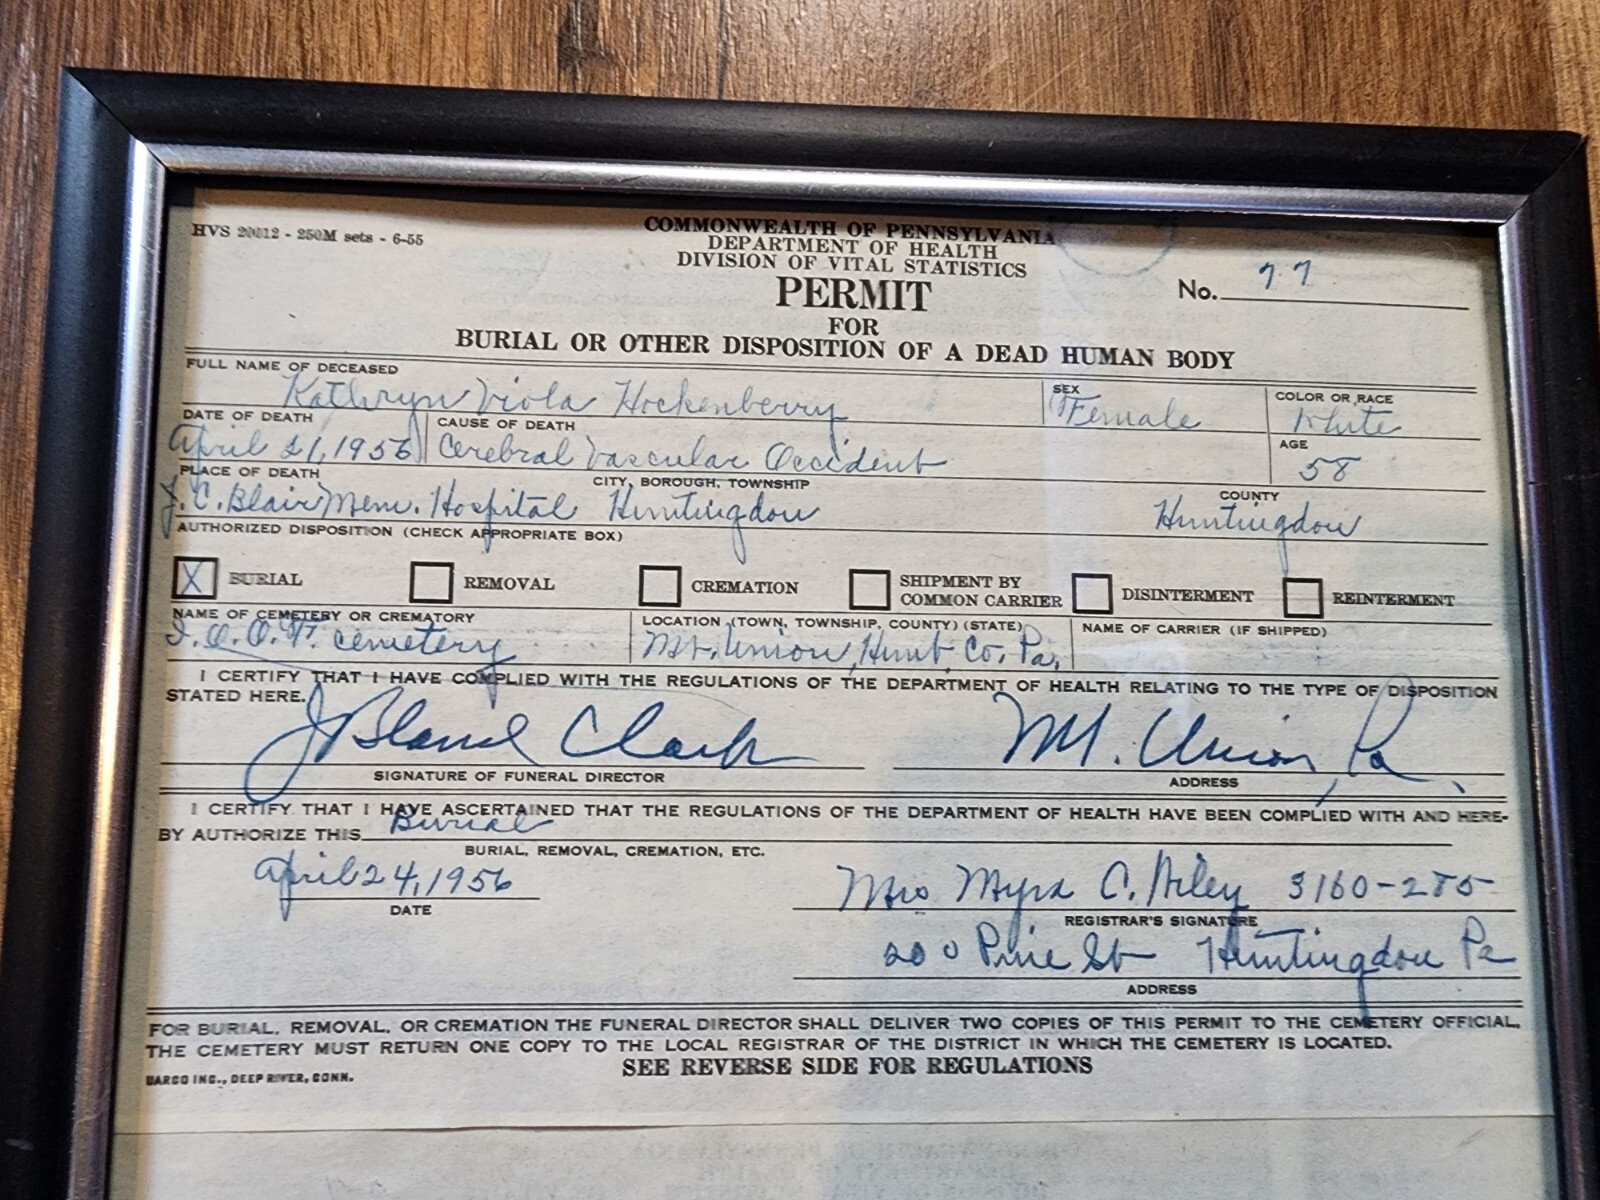 HVS 20012 - 250M sets - 6-55
COMMONWEALTH OF PENNSYLVANIA
DEPARTMENT OF HEALTH
DIVISION OF VITAL STATISTICS
PERMIT
No. 77
FOR
BURIAL OR OTHER DISPOSITION OF A DEAD HUMAN BODY
FULL NAME OF DECEASED SEX COLOR OR RACE
Kathryn Viola Hockenberry Female White
DATE OF DEATH CAUSE OF DEATH AGE
April 21, 1956 Cerebral Vascular Accident 58
PLACE OF DEATH CITY, BOROUGH, TOWNSHIP COUNTY
J. C. Blair Mem. Hospital Huntingdon Huntingdon
AUTHORIZED DISPOSITION (CHECK APPROPRIATE BOX)
X BURIAL REMOVAL CREMATION SHIPMENT BY COMMON CARRIER DISINTERMENT REINTERMENT
NAME OF CEMETERY OR CREMATORY LOCATION (TOWN, TOWNSHIP, COUNTY) (STATE) NAME OF CARRIER (IF SHIPPED)
I. O. O. F. cemetery Mt. Union, Hunt. Co. Pa.
I CERTIFY THAT I HAVE COMPLIED WITH THE REGULATIONS OF THE DEPARTMENT OF HEALTH RELATING TO THE TYPE OF DISPOSITION
STATED HERE.
J Bland Clark Mt. Union, Pa.
SIGNATURE OF FUNERAL DIRECTOR ADDRESS
I CERTIFY THAT I HAVE ASCERTAINED THAT THE REGULATIONS OF THE DEPARTMENT OF HEALTH HAVE BEEN COMPLIED WITH AND HERE-
BY AUTHORIZE THIS Burial
BURIAL, REMOVAL, CREMATION, ETC.
April 24, 1956 Mrs Myra C. Riley 3160-285
DATE REGISTRAR'S SIGNATURE
200 Pine St Huntingdon Pa
ADDRESS
FOR BURIAL, REMOVAL, OR CREMATION THE FUNERAL DIRECTOR SHALL DELIVER TWO COPIES OF THIS PERMIT TO THE CEMETERY OFFICIAL,
THE CEMETERY MUST RETURN ONE COPY TO THE LOCAL REGISTRAR OF THE DISTRICT IN WHICH THE CEMETERY IS LOCATED.
SEE REVERSE SIDE FOR REGULATIONS
UARCO INC., DEEP RIVER, CONN.